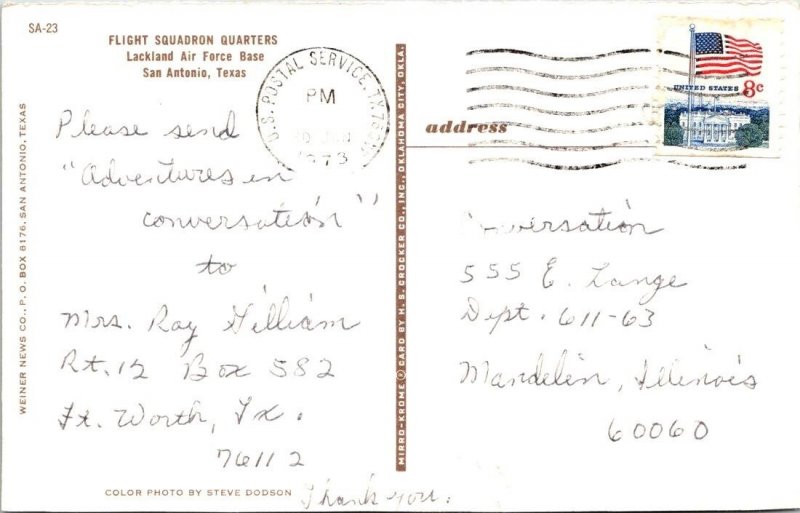 SA-23
FLIGHT SQUADRON QUARTERS
Lackland Air Force Base
San Antonio, Texas
Please send
"Adventures in
conversation"
to
Mrs. Ray Gilliam
Rt. 12 Box 582
Ft. Worth, Tx.
76112
Thank you.
COLOR PHOTO BY STEVE DODSON
WEINER NEWS CO., P. O. BOX 8176, SAN ANTONIO, TEXAS
MIRRO-KROME © CARD BY H. S. CROCKER CO., INC., OKLAHOMA CITY, OKLA.
U.S. POSTAL SERVICE, TX
PM
1973
UNITED STATES 8c
address
555 E. Lange
Dept. 611-63
Mundelein, Illinois
60060